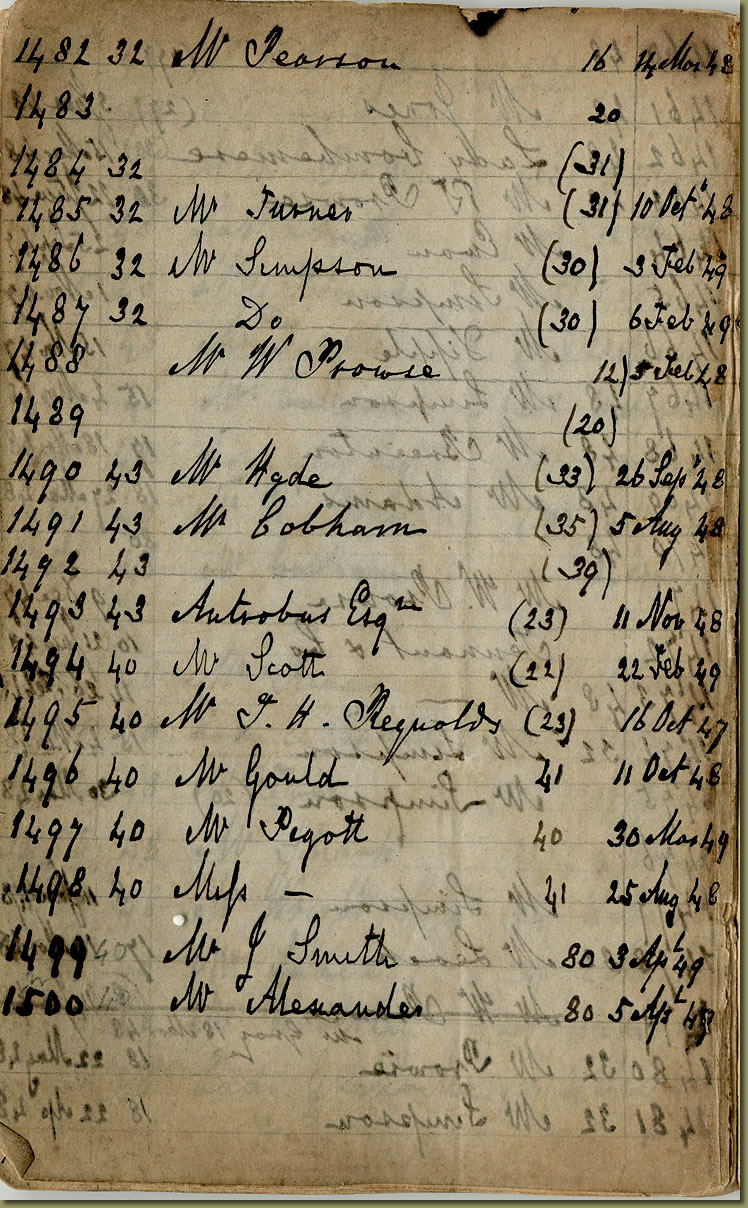 1482 32 Mr Pearson 16 14 Mar 48
1483 20
1484 32 (31)
1485 32 Mr Turner (31) 10 Octr 48
1486 32 Mr Simpson (30) 3 Feb 49
1487 32 Do (30) 6 Feb 49
1488 Mr W Prowse 12) 5 Feb 48
1489 (20)
1490 43 Mr Hyde (33) 26 Sepr 48
1491 43 Mr Cobham (35) 5 Aug 48
1492 43 (39)
1493 43 Antrobus Esqre (23) 11 Nov 48
1494 40 Mr Scott (22) 22 Feb 49
1495 40 Mr T. H. Reynolds (23) 16 Octr 47
1496 40 Mr Gould 41 11 Oct 48
1497 40 Mr Pigott 40 30 Mar 49
1498 40 Mess — 41 25 Aug 48
1499 Mr J Smith 80 3 Apl 49
1500 Mr Alexander 80 5 Apl